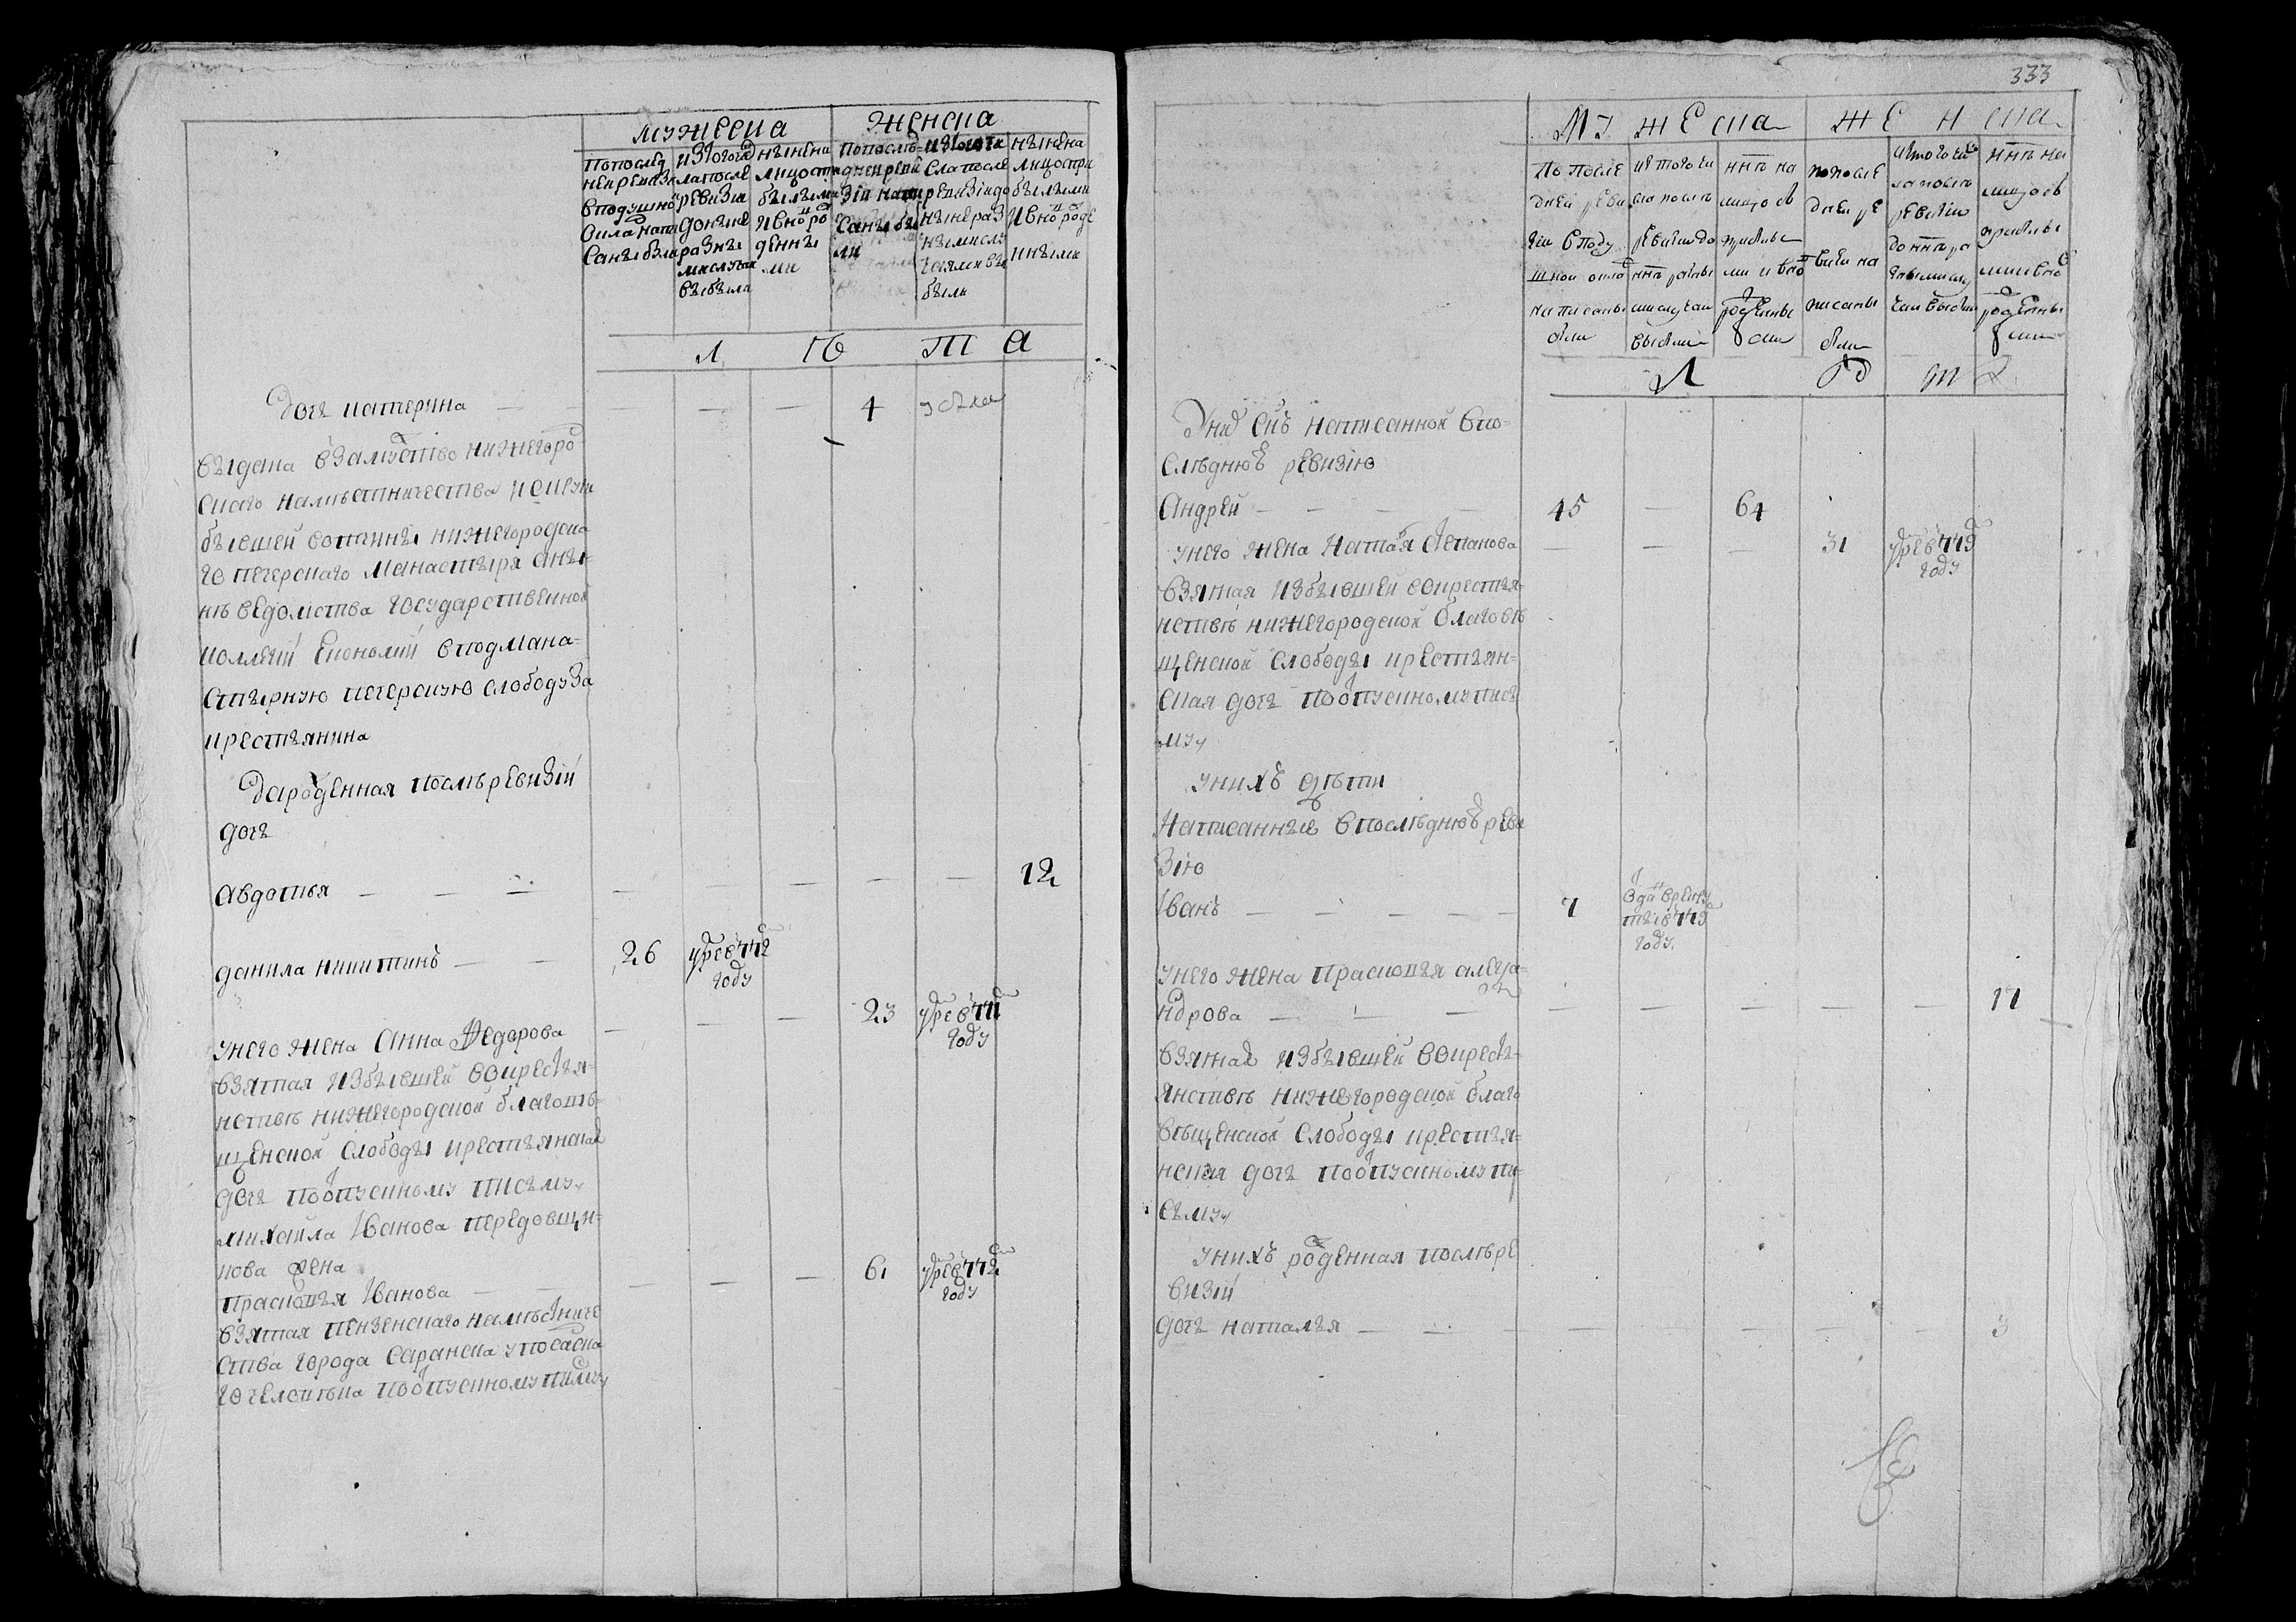 мужеска
женска
по послѣд
ней ревизи
в подушно
окладъ напи
саны были
изъ того чис
ла после
ревизи
до ныне
разны
ми случаи
выбыла
ныне на
лицо съ при
былыми
и вноро
жденны
ми
по послѣ
дней реви
зіи напи
саны бы
ли
из того чи
сла после
ревизіи до
ныне раз
ными слу
чаями вы
были
ныне на
лицо с при
былыми
и вноворожде
нными
л ѣ т а
дочь катерина — — — — — 4
выдана взамуство нижегоро
скаго наместничества
бывшей вотчины нижегородска
го печерскаго манастыря аны
нѣ ведомства государственной
коллегіи економіи в подмана-
стырную печерскую слободу за
крестьянина
да рожденная послѣ ревизіи
дочь
авдотья — — — — — — — — 12
данила никитинъ — — 26 умре в 772
году
у него жена анна федорова — — — 23 умре в 771
году
взятая из бывшей во крестья-
нствѣ нижегородской благовѣ-
щенской слободы крестьянская
дочь по отпускному писму
михаила иванова передовщи-
кова жена
прасковья иванова — — — 61 умре в 772
году
взятая пензенскаго намѣстниче
ства города саранска у посадска
го человѣка по отпускному писму
333
мужеска
женска
по после
дней реви
зіи в поду
шной окладъ
написаны
были
ис того чи
сла после
ревизии до
ннѣ разны
ми случаи
выбыли
ннѣ на
лицо съ
прибылы
ми и вно
рожденны
ми
по после
дней ре
визи на
писаны
были
ннѣ на
лицо съ
прибылы
ми и вно
рожденны
ми
л ѣ т а
снъ написанной в по-
слѣднюю ревизію
андрей — — — — 45 — 64
у него жена наталья степанова — — — 31 умре в 775
году
взятая из бывшей во крестья-
нствѣ нижегородской благовѣ
щенской слободы крестьян-
ская дочь по отпускному пись
му
у нихъ дѣти
написанные в послѣднюю реви
зію
иванъ — — — — — 7 отданъ в рекру
ты в 773
году
у него жена прасковья алекса-
ндрова — — — — — — — — 17
взятая из бывшей во кресть-
янствѣ нижегородской благо
вѣщенской слободы крестья-
нская дочь по отпускному пи-
сьму
у нихъ рожденная послѣ ре
визіи
дочь наталья — — — — — — — — 3